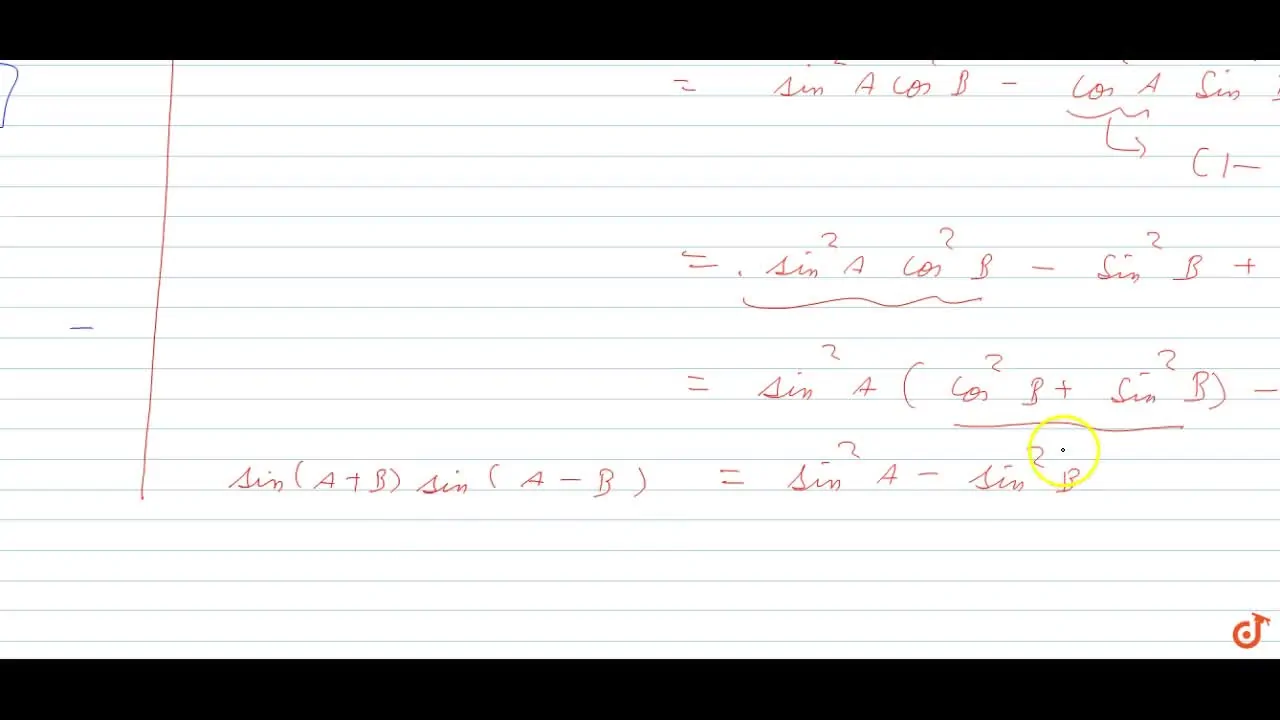 = sin² A cos B - cos A Sin B
(1-
= . sin² A cos² B - Sin² B +
= sin² A ( cos² B + Sin² B) -
sin(A+B) sin( A - B ) = sin² A - sin² B